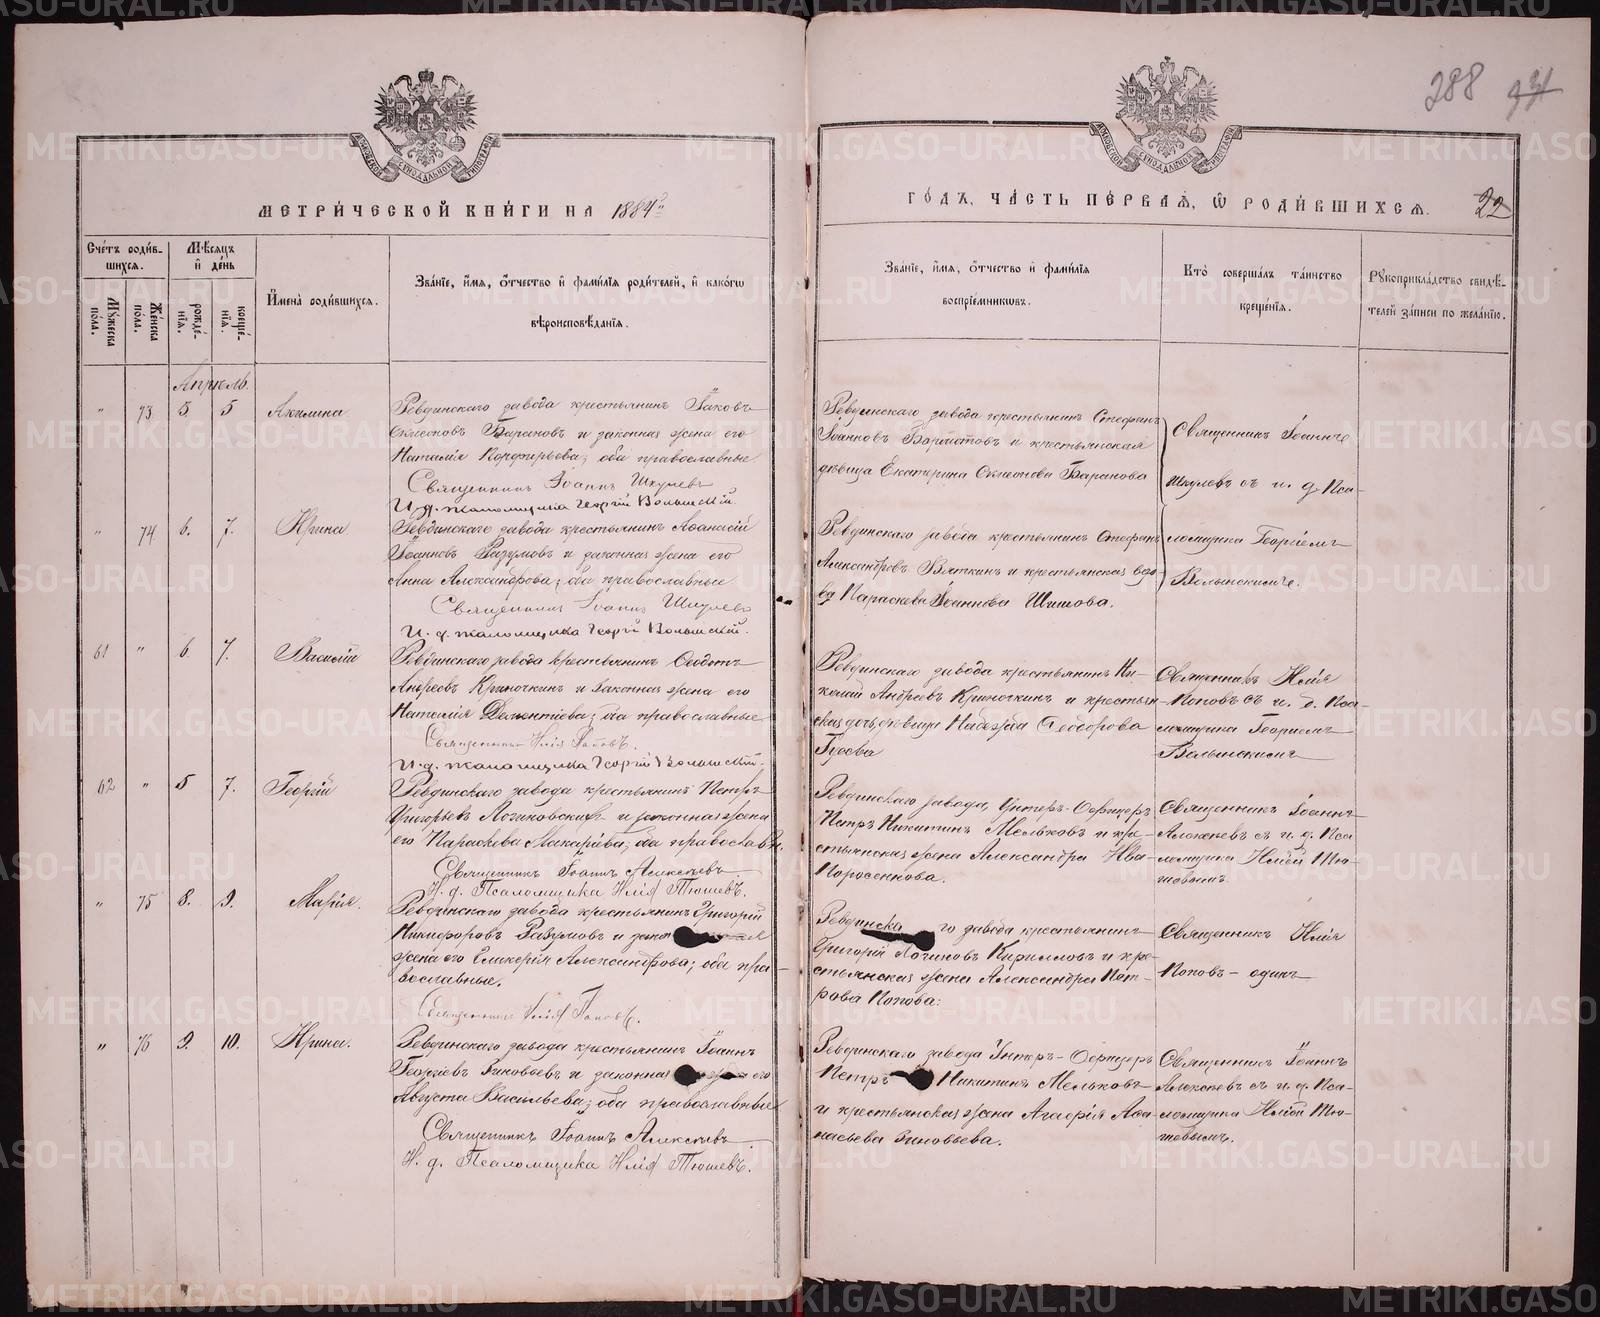 288 94
МЕТРИ́ЧЕСКОЙ КНИ́ГИ НА 1884й
ГО́ДЪ, ЧА́СТЬ ПЕ́РВАѦ, Ѽ РОДИ́ВШИХСѦ. 22
Сче́тъ роди́в-
шихсѧ.
Мꙋ́жеска по́ла.
Же́нска по́ла.
Мѣ́сѧцъ и҆ де́нь
рожде́-нїѧ.
креще́-нїѧ.
И҆мена̀ роди́вшихсѧ.
Зва́нїе, и҆́мѧ, ѻ҆́тчество и҆ фами́лїѧ роди́телей, и҆ како́гѡ
вѣроисповѣ́данїѧ.
Зва́нїе, и҆́мѧ, ѻ҆́тчество и҆ фами́лїѧ
воспрїе́мникѡвъ.
Кто̀ соверша́лъ та́инство
креще́нїѧ.
Рꙋкоприкла́дство свидѣ́-
телей за́писи по жела́нїю.
Апрѣль.
" 73 5. 5 Акилина
Ревдинскаго завода крестьянинъ Іаковъ
Симеоновъ Барановъ и законная жена его
Наталія Порфирьева; оба православные
Священникъ Іоаннъ Шкулевъ
И. д. псаломщика Георгій Волынскій.
Ревдинскаго завода крестьянинъ Стефанъ
Іоанновъ и крестьянская
дѣвица Екатерина Симеонова Баранова
Священникъ Іоаннъ
Шкулевъ съ и. д. Пса-
" 74 6. 7. Ирина
Ревдинскаго завода крестьянинъ Аѳанасій
Іоанновъ Разумовъ и законная жена его
Анна Александрова; оба православные
Священникъ Іоаннъ Шкулевъ
И. д. псаломщика Георгій Волынскій.
Ревдинскаго завода крестьянинъ Стефанъ
Александровъ Вяткинъ и крестьянская вдо-
ва Параскева Іоаннова Шишова.
ломщика Георгіемъ
Волынскимъ.
61 " 6. 7. Василій
Ревдинскаго завода крестьянинъ Ѳеодотъ
Андреевъ Криночкинъ и законная жена его
Наталія Дементіева; оба православные
Священникъ Илія Поповъ.
И. д. псаломщика Георгій Волынскій.
Ревдинскаго завода крестьянинъ Ни-
колай Андреевъ Криночкинъ и крестьян-
ская дочь, дѣвица Надежда Ѳеодорова
Гусева
Священникъ Илія
Поповъ съ и. д. Пса-
ломщика Георгіемъ
Волынскимъ
62 " 5 7. Георгій
Ревдинскаго завода крестьянинъ Петръ
Григорьевъ Логиновскихъ и законная жена
его Параскева Макарьева; оба православн.
Священникъ Іоаннъ Алексѣевъ
И. д. Псаломщика Илія Тюшевъ.
Ревдинскаго завода, Унтеръ-Офицеръ
Петръ Никитинъ Мельковъ и кре-
стьянская жена Александра Ива-
Поросенкова.
Священникъ Іоаннъ
Алексѣевъ съ и. д. Пса-
ломщика Иліей Тю-
шевымъ.
" 75 8. 9. Марія.
Ревдинскаго завода крестьянинъ Григорій
Никифоровъ Разумовъ и закон
жена его Гликерія Александрова; оба пра-
вославные.
Священникъ Илія Поповъ.
Ревдинска го завода крестьянинъ
Григорій Логиновъ Кирилловъ и кре-
стьянская жена Александра Пет-
рова Попова.
Священникъ Илія
Поповъ – одинъ
" 76 9. 10. Ирина.
Ревдинскаго завода крестьянинъ Іоаннъ
Георгіевъ Зиновьевъ и законная жена его
Августа Васильева; оба православные
Священникъ Іоаннъ Алексѣевъ
И. д. Псаломщика Илія Тюшевъ.
Ревдинскаго завода Унтеръ-Офицеръ
Петръ Никитинъ Мельковъ
и крестьянская жена Агафія Аѳа-
насьева Зиновьева.
Священникъ Іоаннъ
Алексѣевъ съ и. д. Пса-
ломщика Иліей Тю-
шевымъ.
METRIKI.GASO-URAL.RU